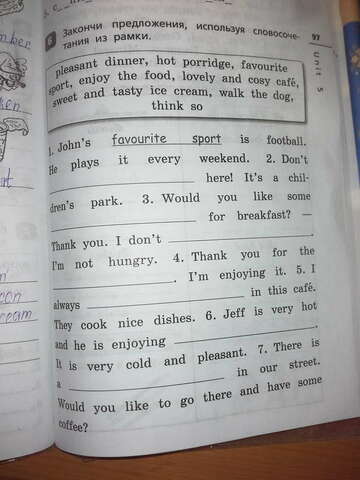 5. c
6 Закончи предложения, используя словосоче-
тания из рамки.
97
Unit 5
pleasant dinner, hot porridge, favourite
sport, enjoy the food, lovely and cosy café,
sweet and tasty ice cream, walk the dog,
think so
1. John's favourite sport is football.
He plays it every weekend. 2. Don't
here! It's a chil-
dren's park. 3. Would you like some
for breakfast? —
Thank you. I don't .
I'm not hungry. 4. Thank you for the
. I'm enjoying it. 5. I
always in this café.
They cook nice dishes. 6. Jeff is very hot
and he is enjoying .
It is very cold and pleasant. 7. There is
a in our street.
Would you like to go there and have some
coffee?